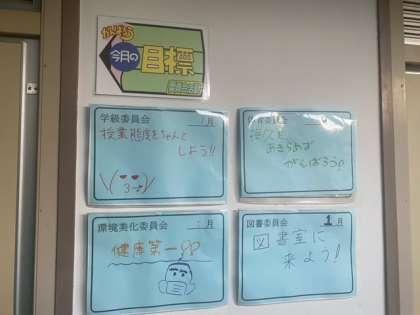 今月の
目標
学級委員会
月
授業態度をちゃんと
しよう!!
体育委員会
月
持久走
あきらめず
がんばろう!
環境美化委員会
月
健康第一
図書委員会
1月
図書室に
来よう!